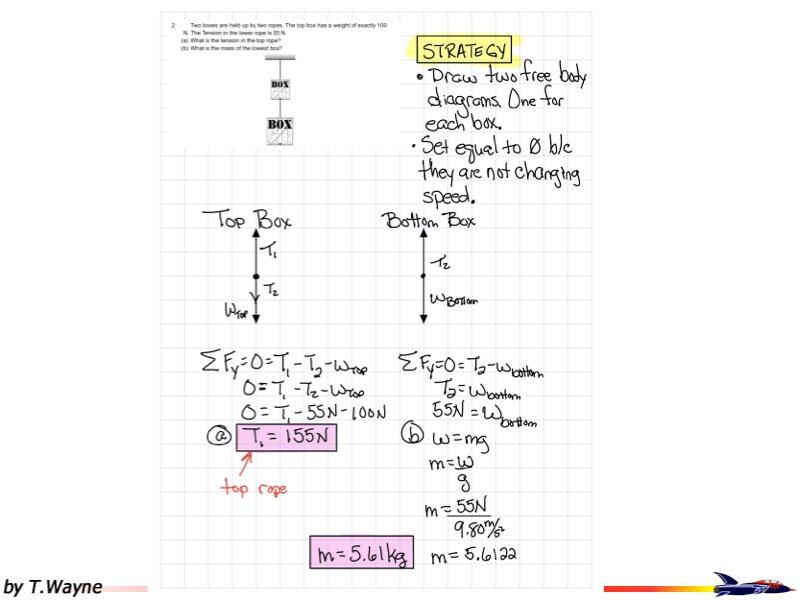 2. Two boxes are held up by two ropes. The top box has a weight of exactly 100
N. The Tension in the lower rope is 55 N.
(a) What is the tension in the top rope?
(b) What is the mass of the lowest box?
BOX
BOX
STRATEGY
• Draw two free body
diagrams. One for
each box.
• Set equal to 0 b/c
they are not changing
speed.
Top Box
T₁
T₂
W_Top
Bottom Box
T₂
W_Bottom
ΣF_y=0=T₁-T₂-W_Top
0=T₁-T₂-W_Top
0=T₁-55N-100N
(a) T₁=155N
top rope
ΣF_y=0=T₂-W_bottom
T₂=W_bottom
55N=W_bottom
(b) W=mg
m=W/g
m=55N/9.80m/s²
m=5.6122
m=5.61kg
by T.Wayne